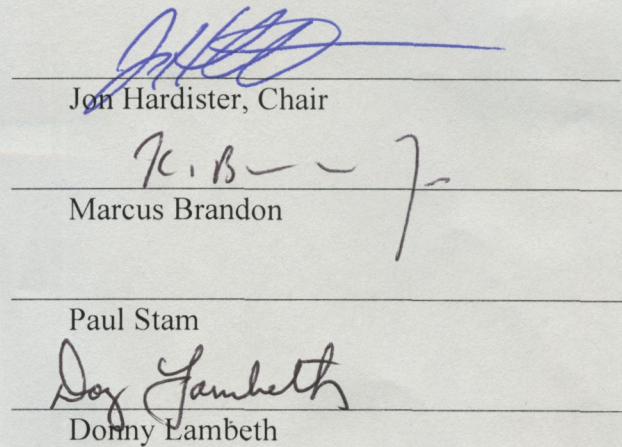 Jon Hardister, Chair
K. B
Marcus Brandon
Paul Stam
Donny Lambeth
Donny Lambeth